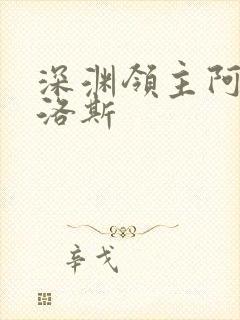 深渊领主阿
洛斯
辛戈